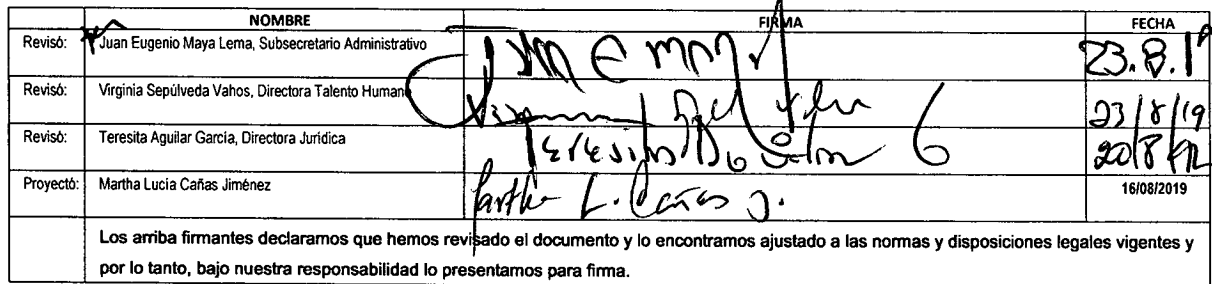 NOMBRE FIRMA FECHA
Revisó: Juan Eugenio Maya Lema, Subsecretario Administrativo 23.8.19
Revisó: Virginia Sepúlveda Vahos, Directora Talento Humano 23/8/19
Revisó: Teresita Aguilar García, Directora Jurídica Teresita Aguilar G 20/8/
Proyectó: Martha Lucía Cañas Jiménez Martha L. Cañas J. 16/08/2019
Los arriba firmantes declaramos que hemos revisado el documento y lo encontramos ajustado a las normas y disposiciones legales vigentes y
por lo tanto, bajo nuestra responsabilidad lo presentamos para firma.